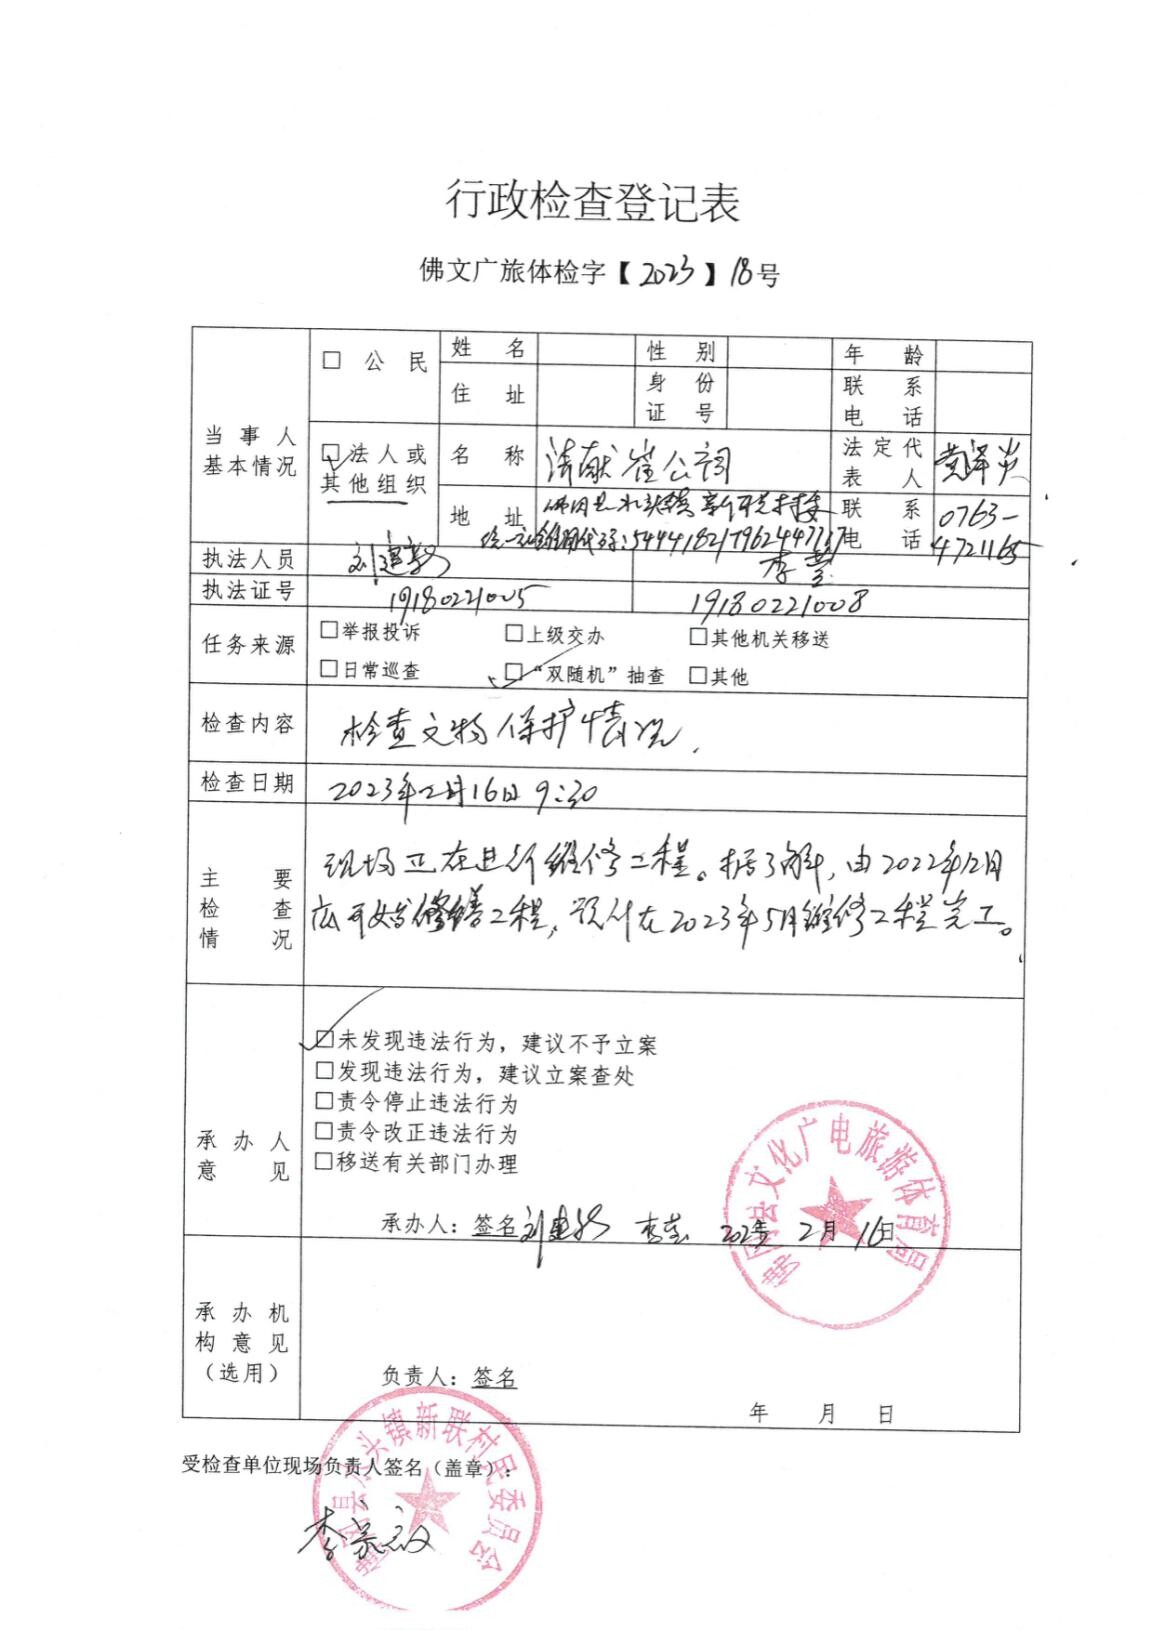 行政检查登记表
佛文广旅体检字【2023】18号
当事人基本情况
□ 公民
姓名
性别
年龄
住址
身份证号
联系电话
□法人或其他组织
名称
清献崔公祠
法定代表人
地址
佛冈县水头镇新联村委
统一社会信用代码:54441821796244771
联系电话
0763-4721165
执法人员
刘建
李莹
执法证号
19180221005
19180221008
任务来源
□举报投诉 □上级交办 □其他机关移送
□日常巡查 □“双随机”抽查 □其他
检查内容
检查文物保护情况.
检查日期
2023年2月16日 9:30
主要检查情况
现场正在进行维修工程。据了解,由2022年12月
底开始修缮工程,预计在2023年5月维修工程完工。
承办人意见
□未发现违法行为,建议不予立案
□发现违法行为,建议立案查处
□责令停止违法行为
□责令改正违法行为
□移送有关部门办理
承办人:签名 刘建 李莹 2023年 2月 16日
佛冈县文化广电旅游体育局
承办机构意见(选用)
负责人:签名
年 月 日
受检查单位现场负责人签名(盖章):
佛冈县水头镇新联村民委员会
李